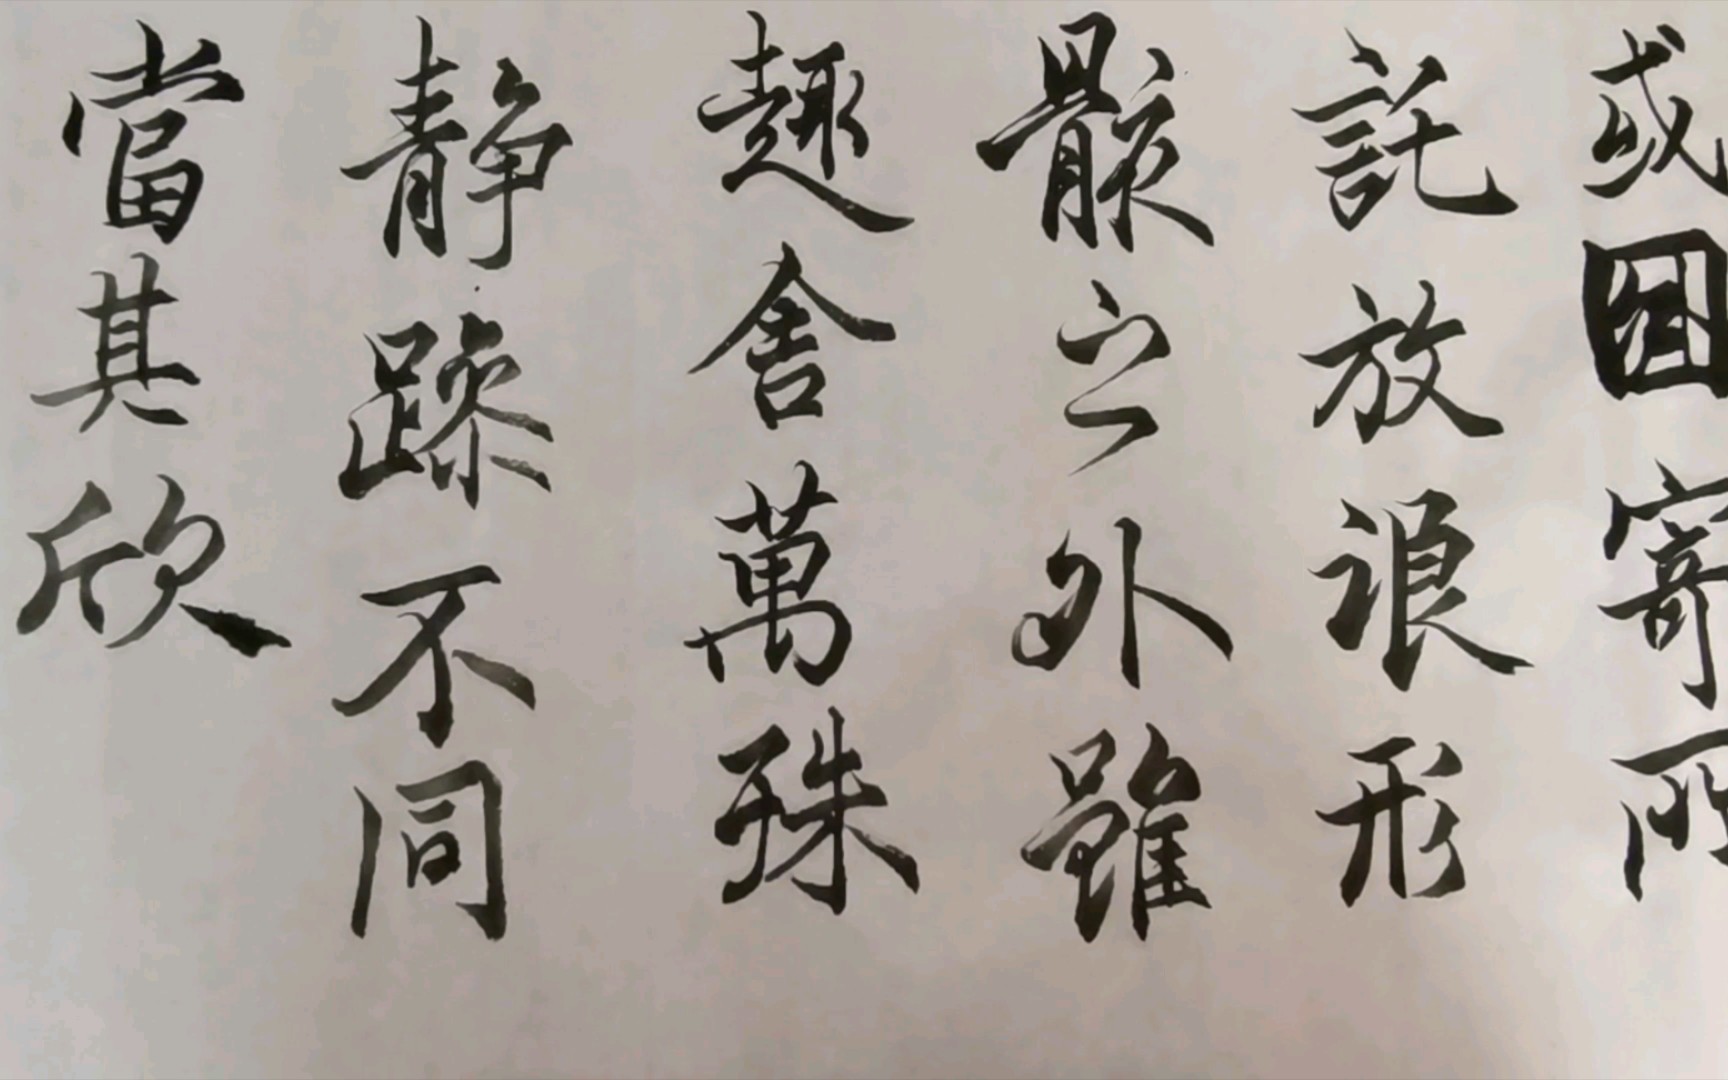 或因寄所
託放浪形
骸之外雖
趣舍萬殊
静躁不同
當其欣